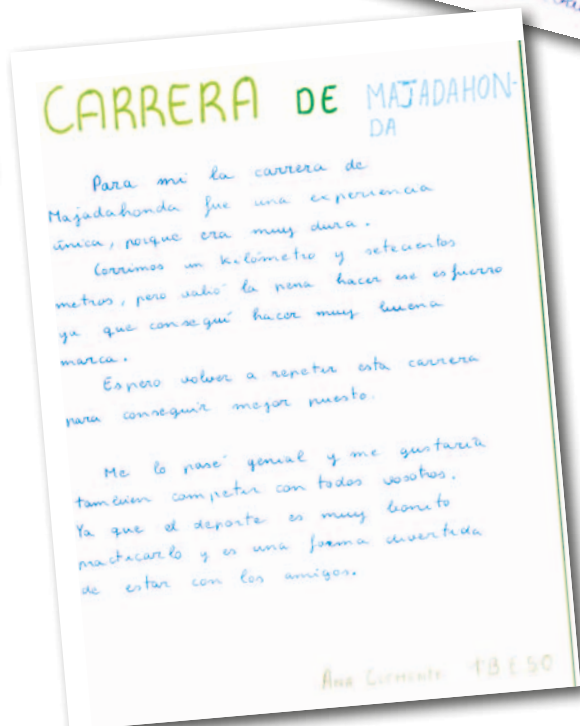 CARRERA DE MAJADAHON-
DA
Para mi la carrera de
Majadahonda fue una experiencia
única, porque era muy dura.
Corrimos un kilómetro y setecientos
metros, pero valió la pena hacer ese esfuerzo
ya que conseguí hacer muy buena
marca.
Espero volver a repetir esta carrera
para conseguir mejor puesto.
Me lo pasé genial y me gustaría
tambien competir con todos vosotros.
Ya que el deporte es muy bonito
practicarlo y es una forma divertida
de estar con los amigos.
Ana Clemente 1ºB ESO